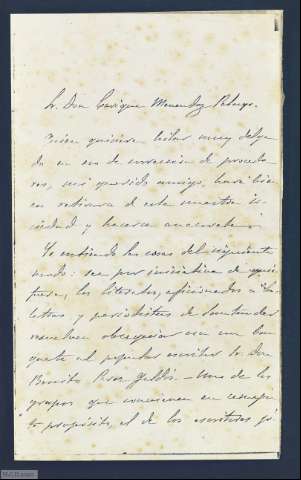 Sr. Don Enrique Menendez Pelayo.
Quien quisiera hilar muy delga-
do en en de corrección de procede-
res, mi querido amigo, hará bien
en retirarse de esta nuestra so-
ciedad y hacerse anacoreta.
Yo entiendo las cosas del siguiente
modo: sea por iniciativa de quien
fuere, los literatos, aficionados a las
letras y periodistas de Santander
resuelven obsequiar con un ban-
quete al popular escritor Sr. Don
Benito Perez Galdós. – Uno de los
grupos que convienen en
propósito, el de los escritores jó